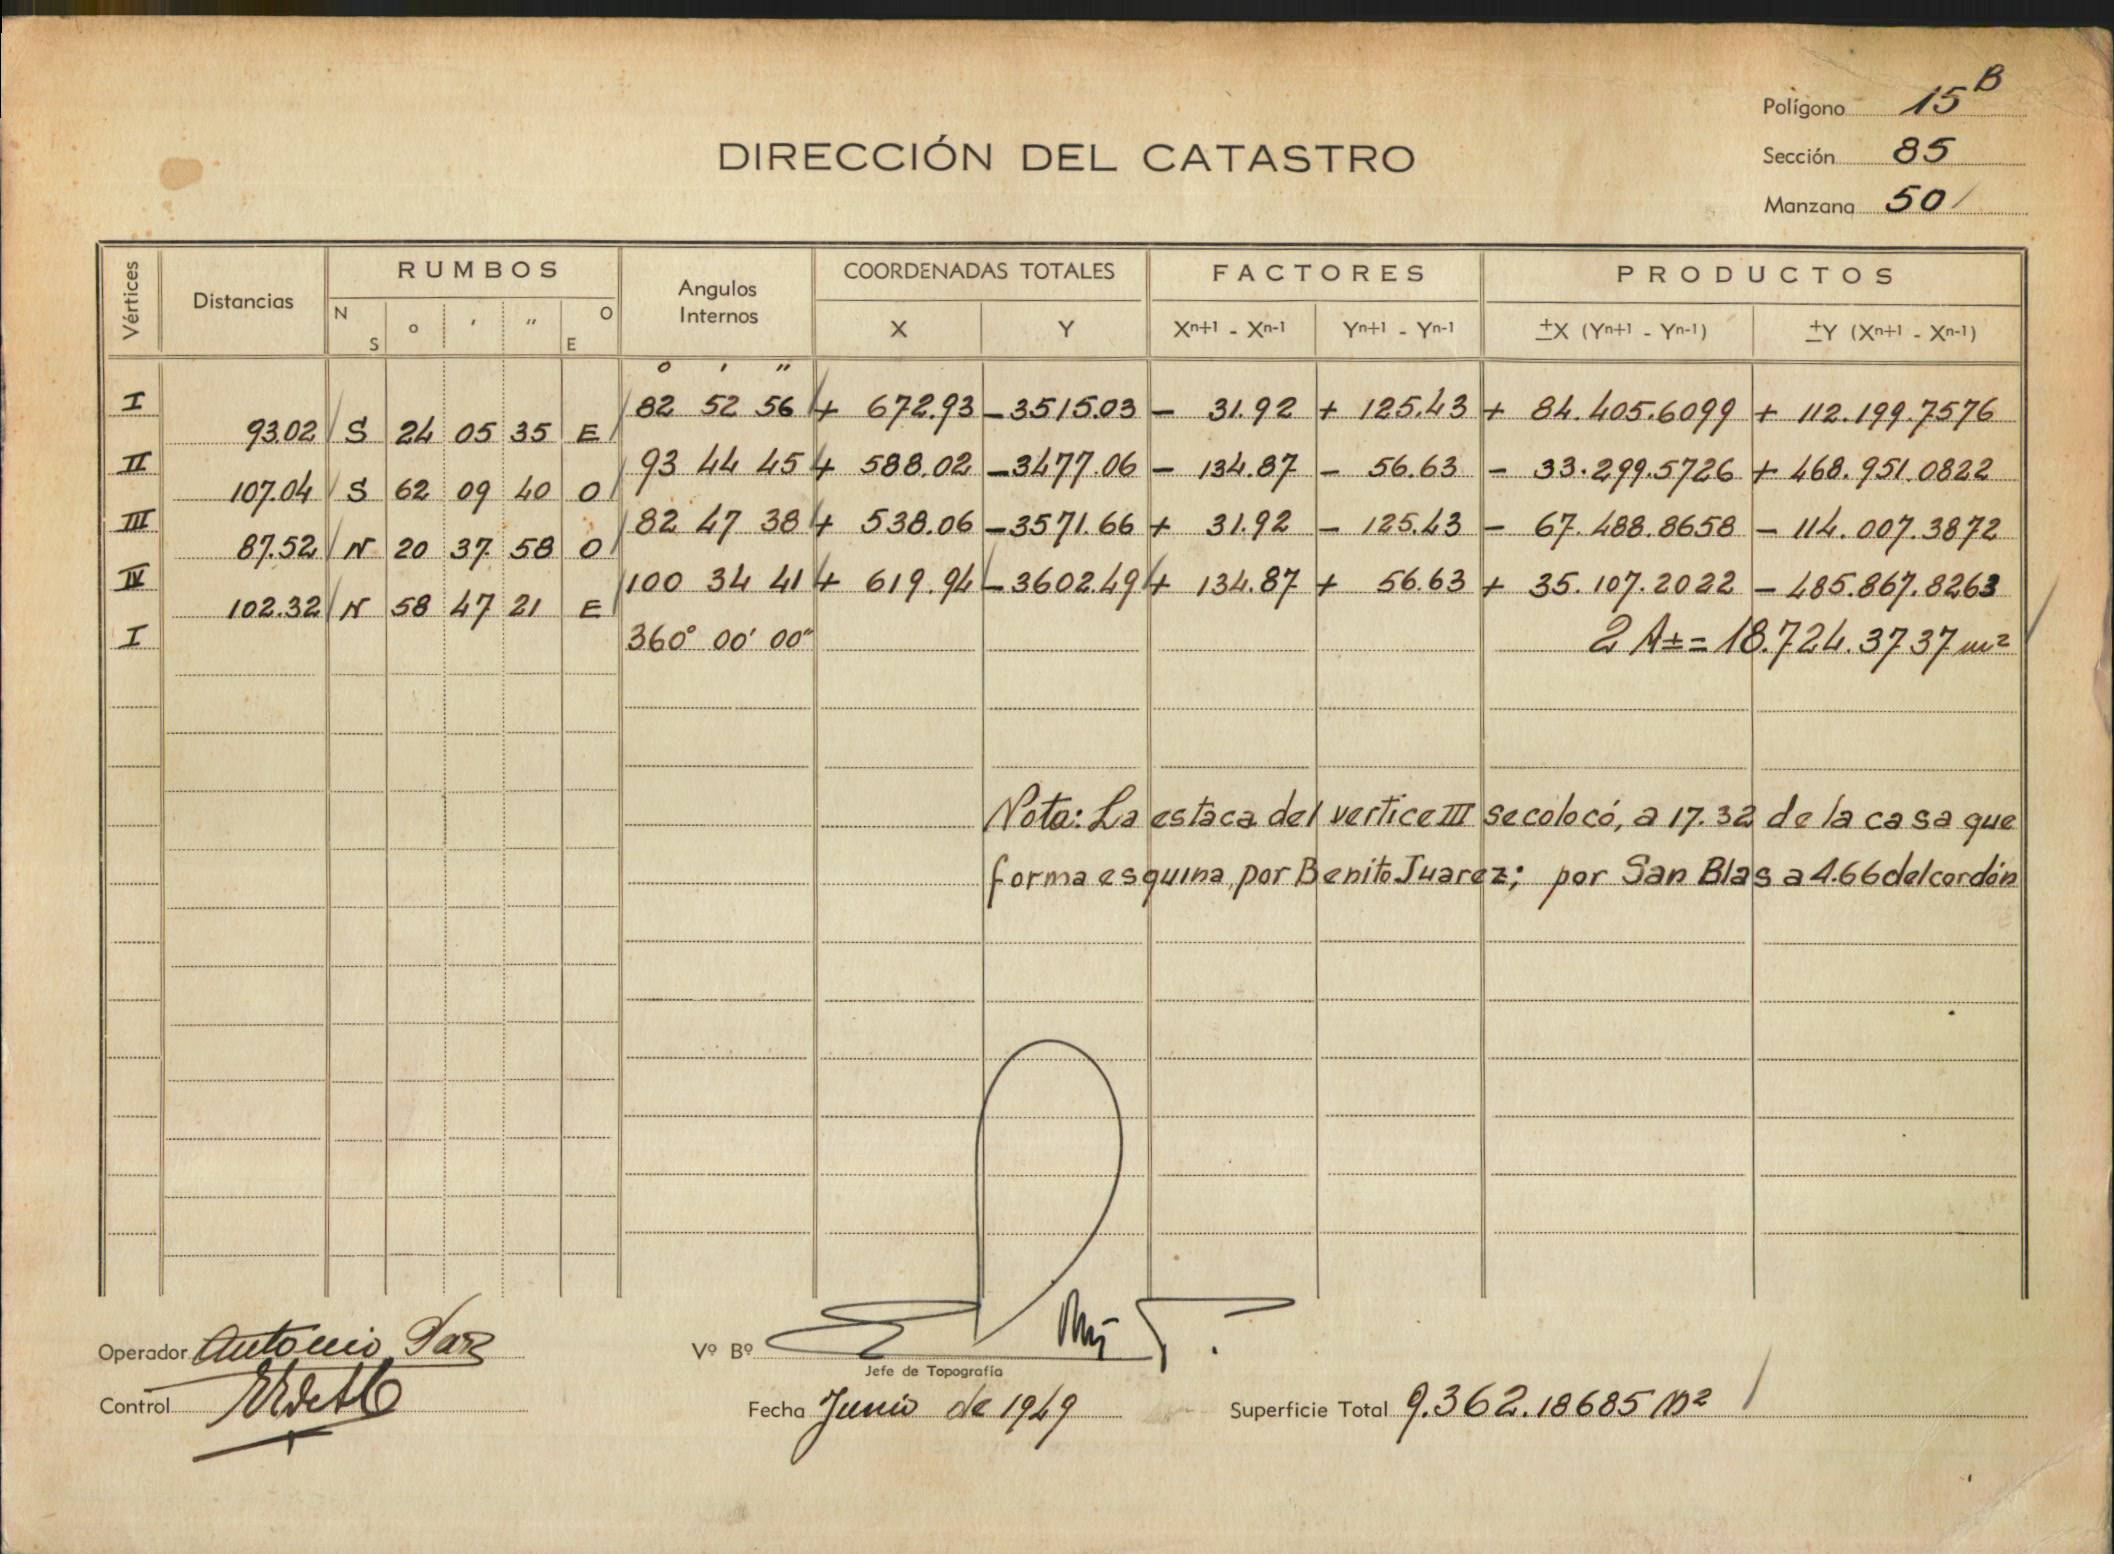 Polígono 15 B
DIRECCIÓN DEL CATASTRO
Sección 85
Manzana 50
Vértices Distancias RUMBOS Angulos Internos COORDENADAS TOTALES FACTORES PRODUCTOS
N S o ' " O E X Y Xn+1 - Xn-1 Yn+1 - Yn-1 ±X (Yn+1 - Yn-1) ±Y (Xn+1 - Xn-1)
o ' "
I 82 52 56 + 672.93 -3515.03 - 31.92 + 125.43 + 84.405.6099 + 112.199.7576
93.02 S 24 05 35 E
II 93 44 45 + 588.02 -3477.06 - 134.87 - 56.63 - 33.299.5726 + 468.951.0822
107.04 S 62 09 40 O
III 82 47 38 + 538.06 -3571.66 + 31.92 - 125.43 - 67.488.8658 - 114.007.3872
87.52 N 20 37 58 O
IV 100 34 41 + 619.94 -3602.49 + 134.87 + 56.63 + 35.107.2022 - 485.867.8263
102.32 N 58 47 21 E
I 360° 00' 00" 2 A± = 18.724.3737 m²
Nota: La estaca del vertice III se colocó, a 17.32 de la casa que
forma esquina, por Benito Juarez; por San Blas a 4.66 del cordón
Operador Antonio Paz
Vº Bº
Jefe de Topografía
Control
Fecha Junio de 1949
Superficie Total 9.362.18685 m²